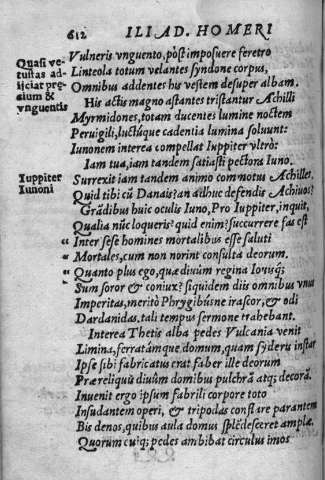 612 ILIAD. HOMERI
Vulneris vnguento, pòst imposuere feretro
Linteola totum velantes syndone corpus,
Omnibus addentes his vestem desuper albam.
His actis magno astantes tristantur Achilli
Myrmidones, totam ducentes lumine noctem
Peruigili, luctúque cadentia lumina soluunt:
Iunonem interea compellat Iuppiter vltrò:
Iam tua, iam tandem satiasti pectora Iuno.
Surrexit iam tandem animo commotus Achilles.
Quid tibi cū Danais? an adhuc defendis Achiuos?
Grādibus huic oculis Iuno, Pro Iuppiter, inquit,
Qualia nūc loqueris? quid enim? succurrere fas est
“ Inter sese homines mortalibus esse saluti
“ Mortales, cum non norint consulta deorum.
“ Quanto plus ego, quæ diuûm regina Iouisq;
“ Sum soror & coniux? siquidem diis omnibus vnus
Imperitas, meritò Phrygibúsne irascor, & odi
Dardanidas. tali tempus sermone trahebant.
Interea Thetis alba pedes Vulcania venit
Limina, ferratámque domum, quam syderis instar
Ipse sibi fabricatus erat faber ille deorum
Præreliquis diuûm domibus pulchrā atq; decorā.
Inuenit ergo ipsum fabrili corpore toto
Insudantem operi, & tripodas conflare parantem
Bis denos, quibus aula domus splēdesceret amplæ.
Quorum cuiq; pedes ambibat circulus imos
Quasi ve-
tustas ad-
iiciat pre-
cium &
vnguentis
Iuppiter
Iunoni